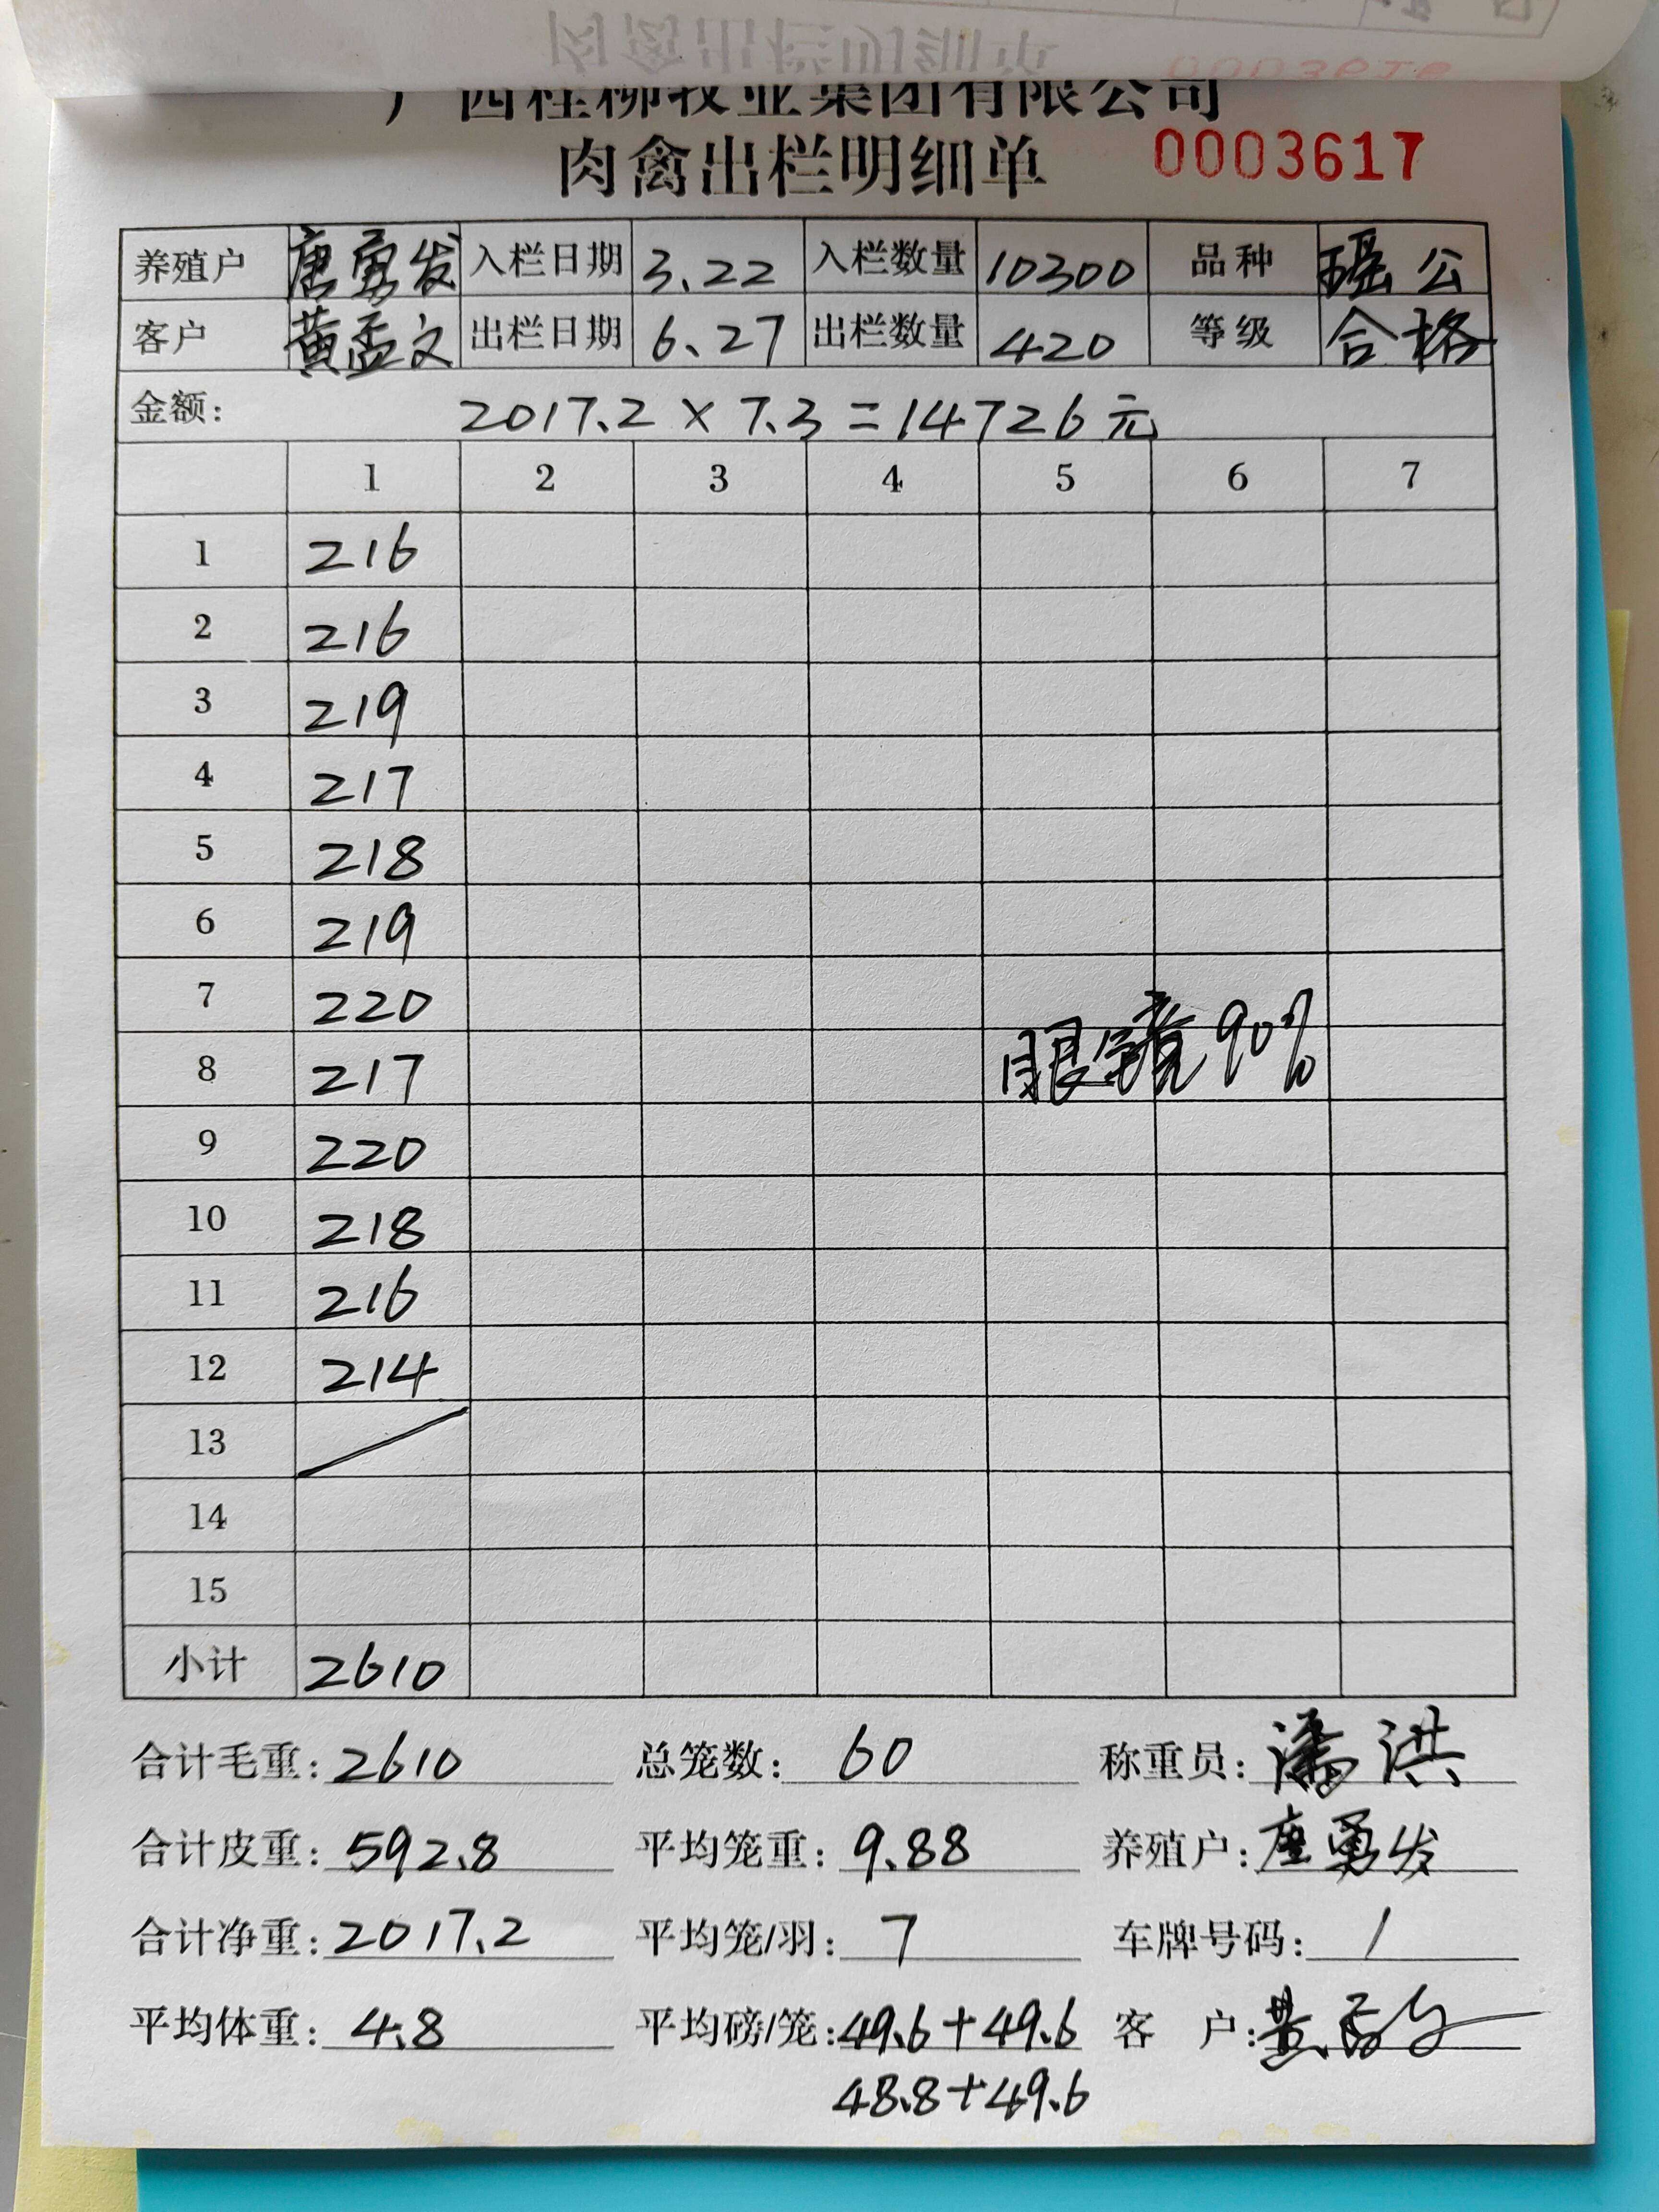 广西桂柳牧业集团有限公司
肉禽出栏明细单 0003617
养殖户 唐勇发 入栏日期 3.22 入栏数量 10300 品种 瑶公
客户 黄孟文 出栏日期 6.27 出栏数量 420 等级 合格
金额: 2017.2 × 7.3 = 14726元
1 2 3 4 5 6 7
1 216
2 216
3 219
4 217
5 218
6 219
7 220
8 217 眼镜90%
9 220
10 218
11 216
12 214
13
14
15
小计 2610
合计毛重: 2610 总笼数: 60 称重员: 潘洪
合计皮重: 592.8 平均笼重: 9.88 养殖户: 唐勇发
合计净重: 2017.2 平均笼/羽: 7 车牌号码: /
平均体重: 4.8 平均磅/笼: 49.6+49.6 客户: 黄孟文
48.8+49.6